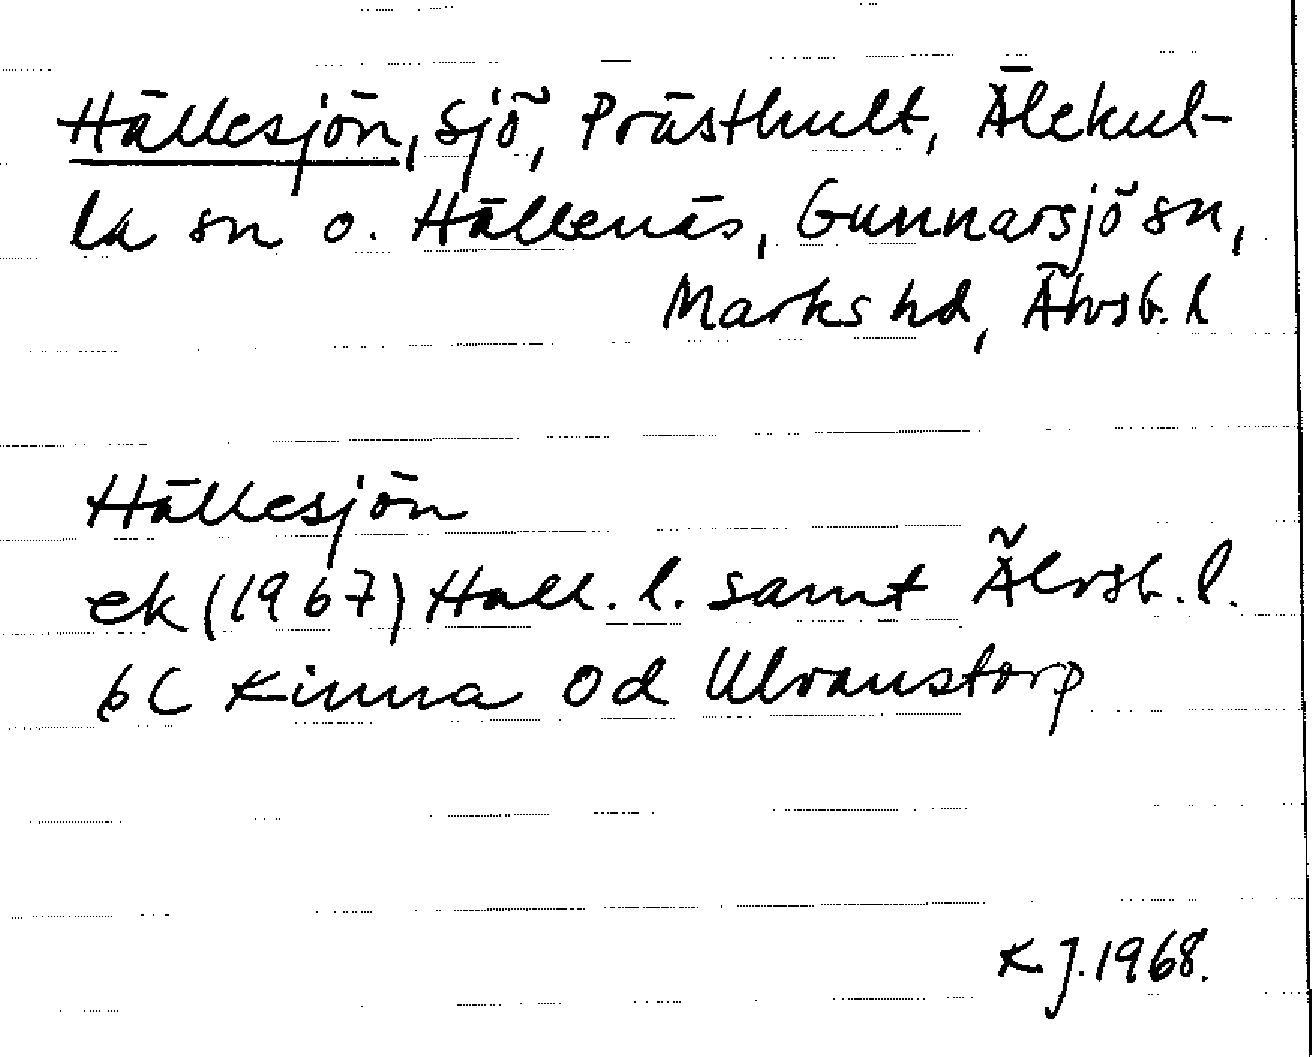 Hällesjön, sjö, Prästhult, Älekul-
la sn o. Hällenäs, Gunnarsjö sn,
Marks hd, Älvsb. l
Hällesjön
ek (1967) Hall. l. samt Älvsb. l.
6C Kinna Od Ulvanstorp
K J. 1968.